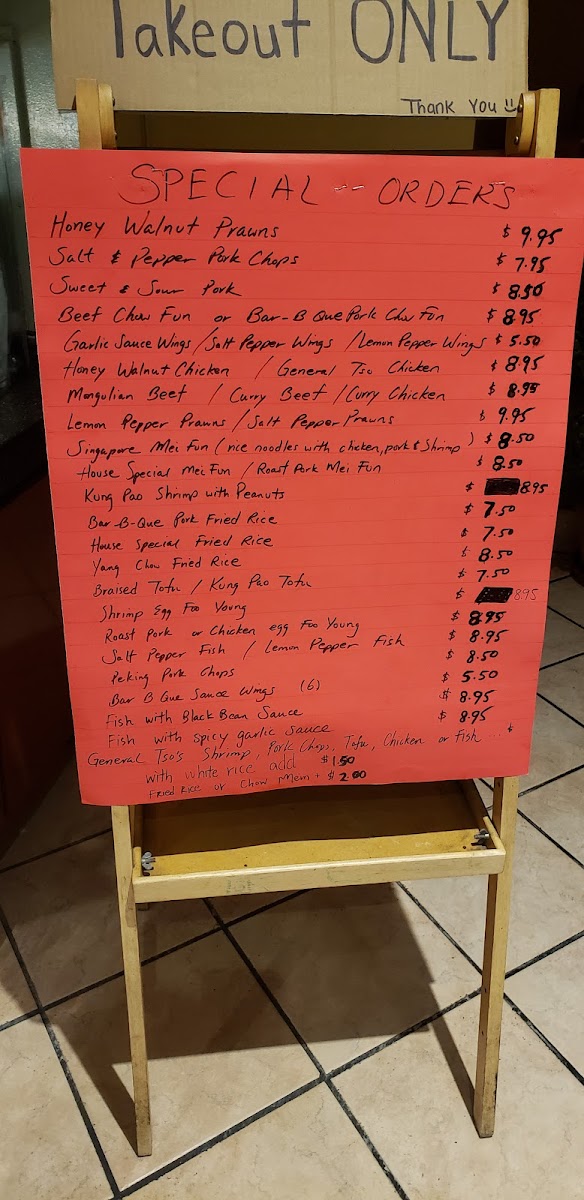 Takeout ONLY
Thank You
SPECIAL -- ORDERS
Honey Walnut Prawns $ 9.95
Salt & Pepper Pork Chops $ 7.95
Sweet & Sour Pork $ 8.50
Beef Chow Fun or Bar-B Que Pork Chow Fun $ 8.95
Garlic Sauce Wings / Salt Pepper Wings / Lemon Pepper Wings $ 5.50
Honey Walnut Chicken / General Tso Chicken $ 8.95
Mongulian Beef / Curry Beef / Curry Chicken $ 8.95
Lemon Pepper Prawns / Salt Pepper Prawns $ 9.95
Singapore Mei Fun (rice noodles with chicken, pork & Shrimp) $ 8.50
House Special Mei Fun / Roast Pork Mei Fun $ 8.50
Kung Pao Shrimp with Peanuts $ 8.95
Bar-B-Que Pork Fried Rice $ 7.50
House Special Fried Rice $ 7.50
Yang Chow Fried Rice $ 8.50
Braised Tofu / Kung Pao Tofu $ 7.50
Shrimp Egg Foo Young $ 8.95
Roast Pork or Chicken egg Foo Young $ 8.95
Salt Pepper Fish / Lemon Pepper Fish $ 8.95
Peking Pork Chops $ 8.50
Bar B Que Sauce Wings (6) $ 5.50
Fish with Black Bean Sauce $ 8.95
Fish with spicy garlic sauce $ 8.95
General Tso's Shrimp, Pork Chops, Tofu, Chicken or fish ... $
with white rice add $1.50
Fried Rice or Chow Mein + $2.00